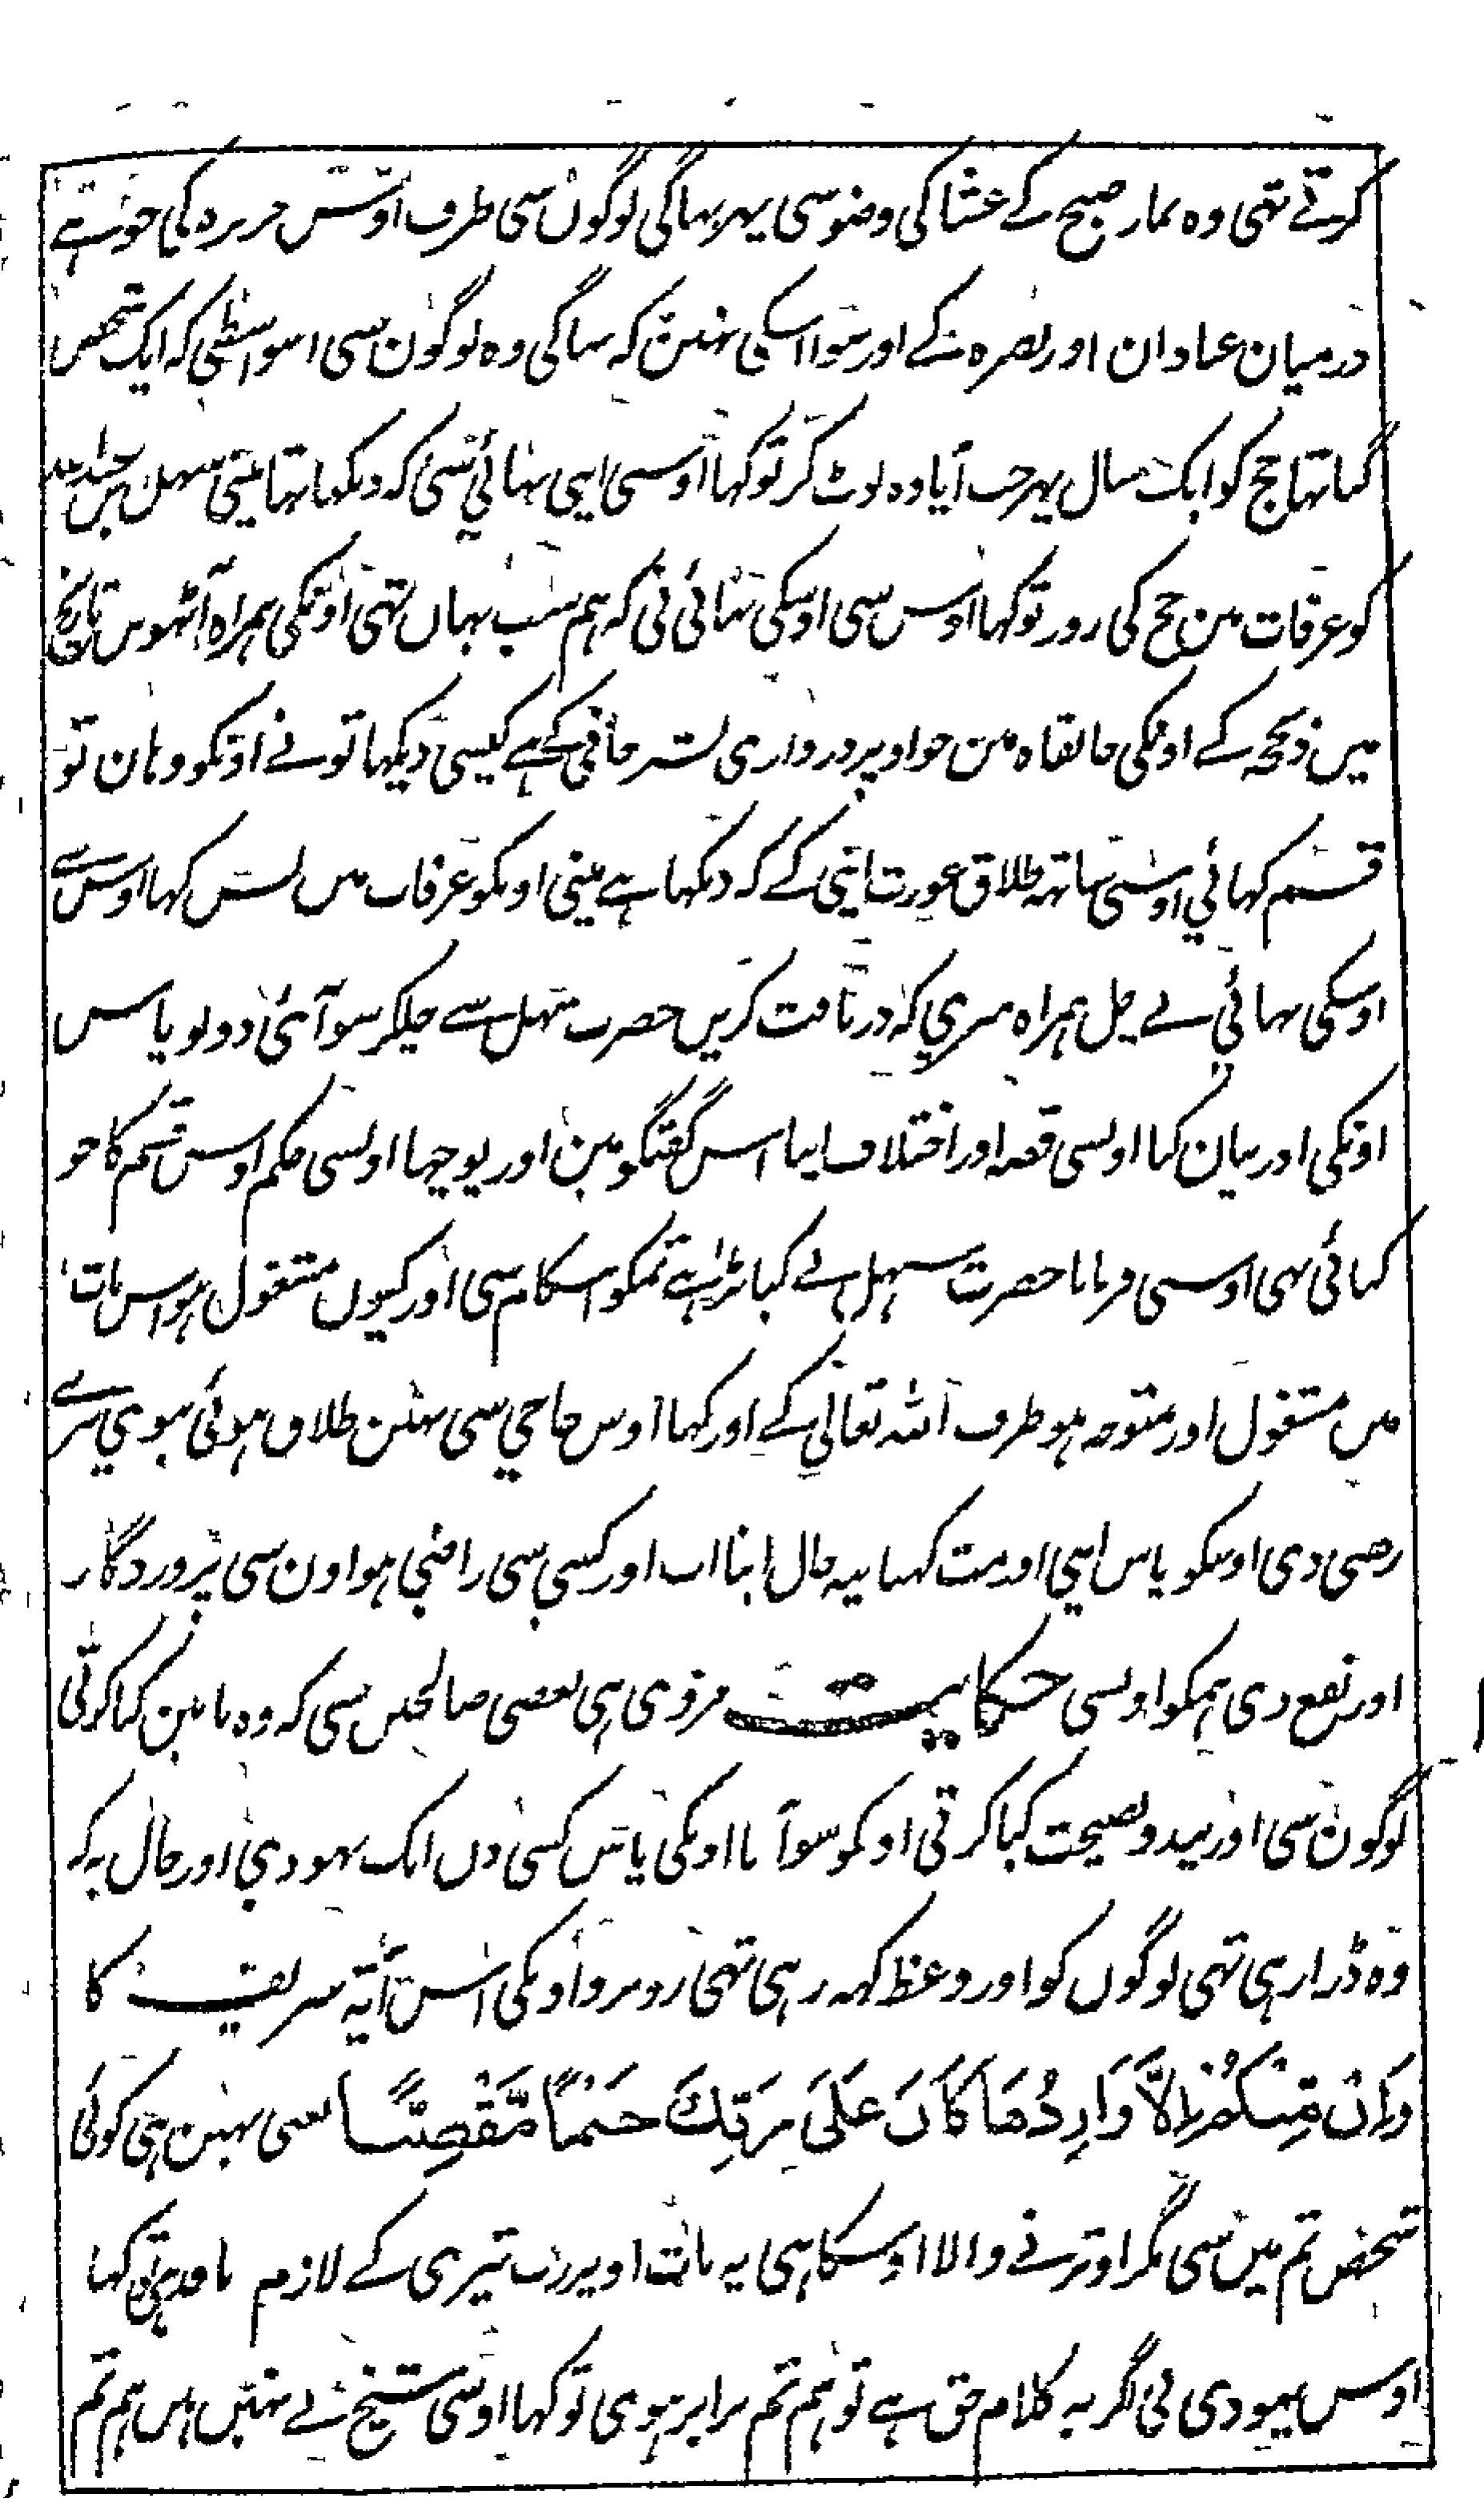 کرتے تھی وہ نماز صبح کے عشا کی وضو سی پہر بہاگی لوگوں سی طرف اوس جزیرہ کی جو ہے
درمیان عبادان اور بصرہ کے اور سوا اسکی نہین کہ بہاگی وہ لوگون سی اسواسطی کہ ایک شخص
گیا تہا حج کو ایک سال پہر جب آیا وہ لوٹ کر تو کہا اوسی اپنی بہائی سی کہ دیکہا تہا مینی سہل بن عبداللہ
کو عرفات مین حج کی روز تو کہا اوس سی اوسکی بہائی نی کہ ہم سب یہاں تہی اونکی ہمراہ آٹہوین تاریخ
میں ذیحجہ کے اونکی خانقاہ مین جو اوپر دروازی بشر حافی کے ہے کیسی دیکہا تونے اونکو وہان تو
قسم کہائی اوسنی ساتہ طلاق عورت اپنی کے کہ دیکہا ہے مینی اونکو عرفات میں بس کہا اوس سے
اوسکی بہائی نے چل ہمراہ میری کہ دریافت کریں حضرت سہل سے چلکر سو آئی دونو پاس
اونکی اور بیان کیا اونسی قصہ اور اختلاف اپنا اس گفتگو مین اور پوچہا اونسی حکم اوس قسم کا جو
کہائی تہی اوسی فرمایا حضرت سہل نے کیا پڑا ہے تمکو اسکام سی اور کیوں مشغول ہو اس بات
میں مشغول اور متوجہ ہو طرف اللہ تعالیٰ کے اور کہا اوس حاجی سی نہین طلاق ہوئی بیوی تیرے
رہنی دی اوسکو پاس اپنی اور مت کہنا یہ حال اپنا اب اور کسی سی راضی ہو اون سی پروردگار
اور نفع دی ہمکو اونسی حکایت مروی ہی بعضی صالحین سی کہ وہ باتین کیا کرتی
لوگون سی اور پند و نصیحت کیا کرتی اونکو سو آیا اونکی پاس کسی دن ایک یہودی اور حال یہ کہ
وہ ڈرا رہی تہی لوگوں کو اور وعظ کہہ رہی تہی روبرو اونکی اس آیۃ شریف کا
وَاِنْ مِّنْكُمْ اِلَّا وَارِدُهَا كَانَ عَلَىٰ رَبِّكَ حَتْمًا مَّقْضِيًّا یعنی نہین ہی کوئی
شخص تم میں سی مگر اوترنے والا اوسکا ہی یہ بات اوپر رب تیری کے لازم کہا
اوس یہودی نی اگر یہ کلام حق ہے تو ہم تم برابر ہوی تو کہا اوسی شیخ نے نہین ہین ہم تم